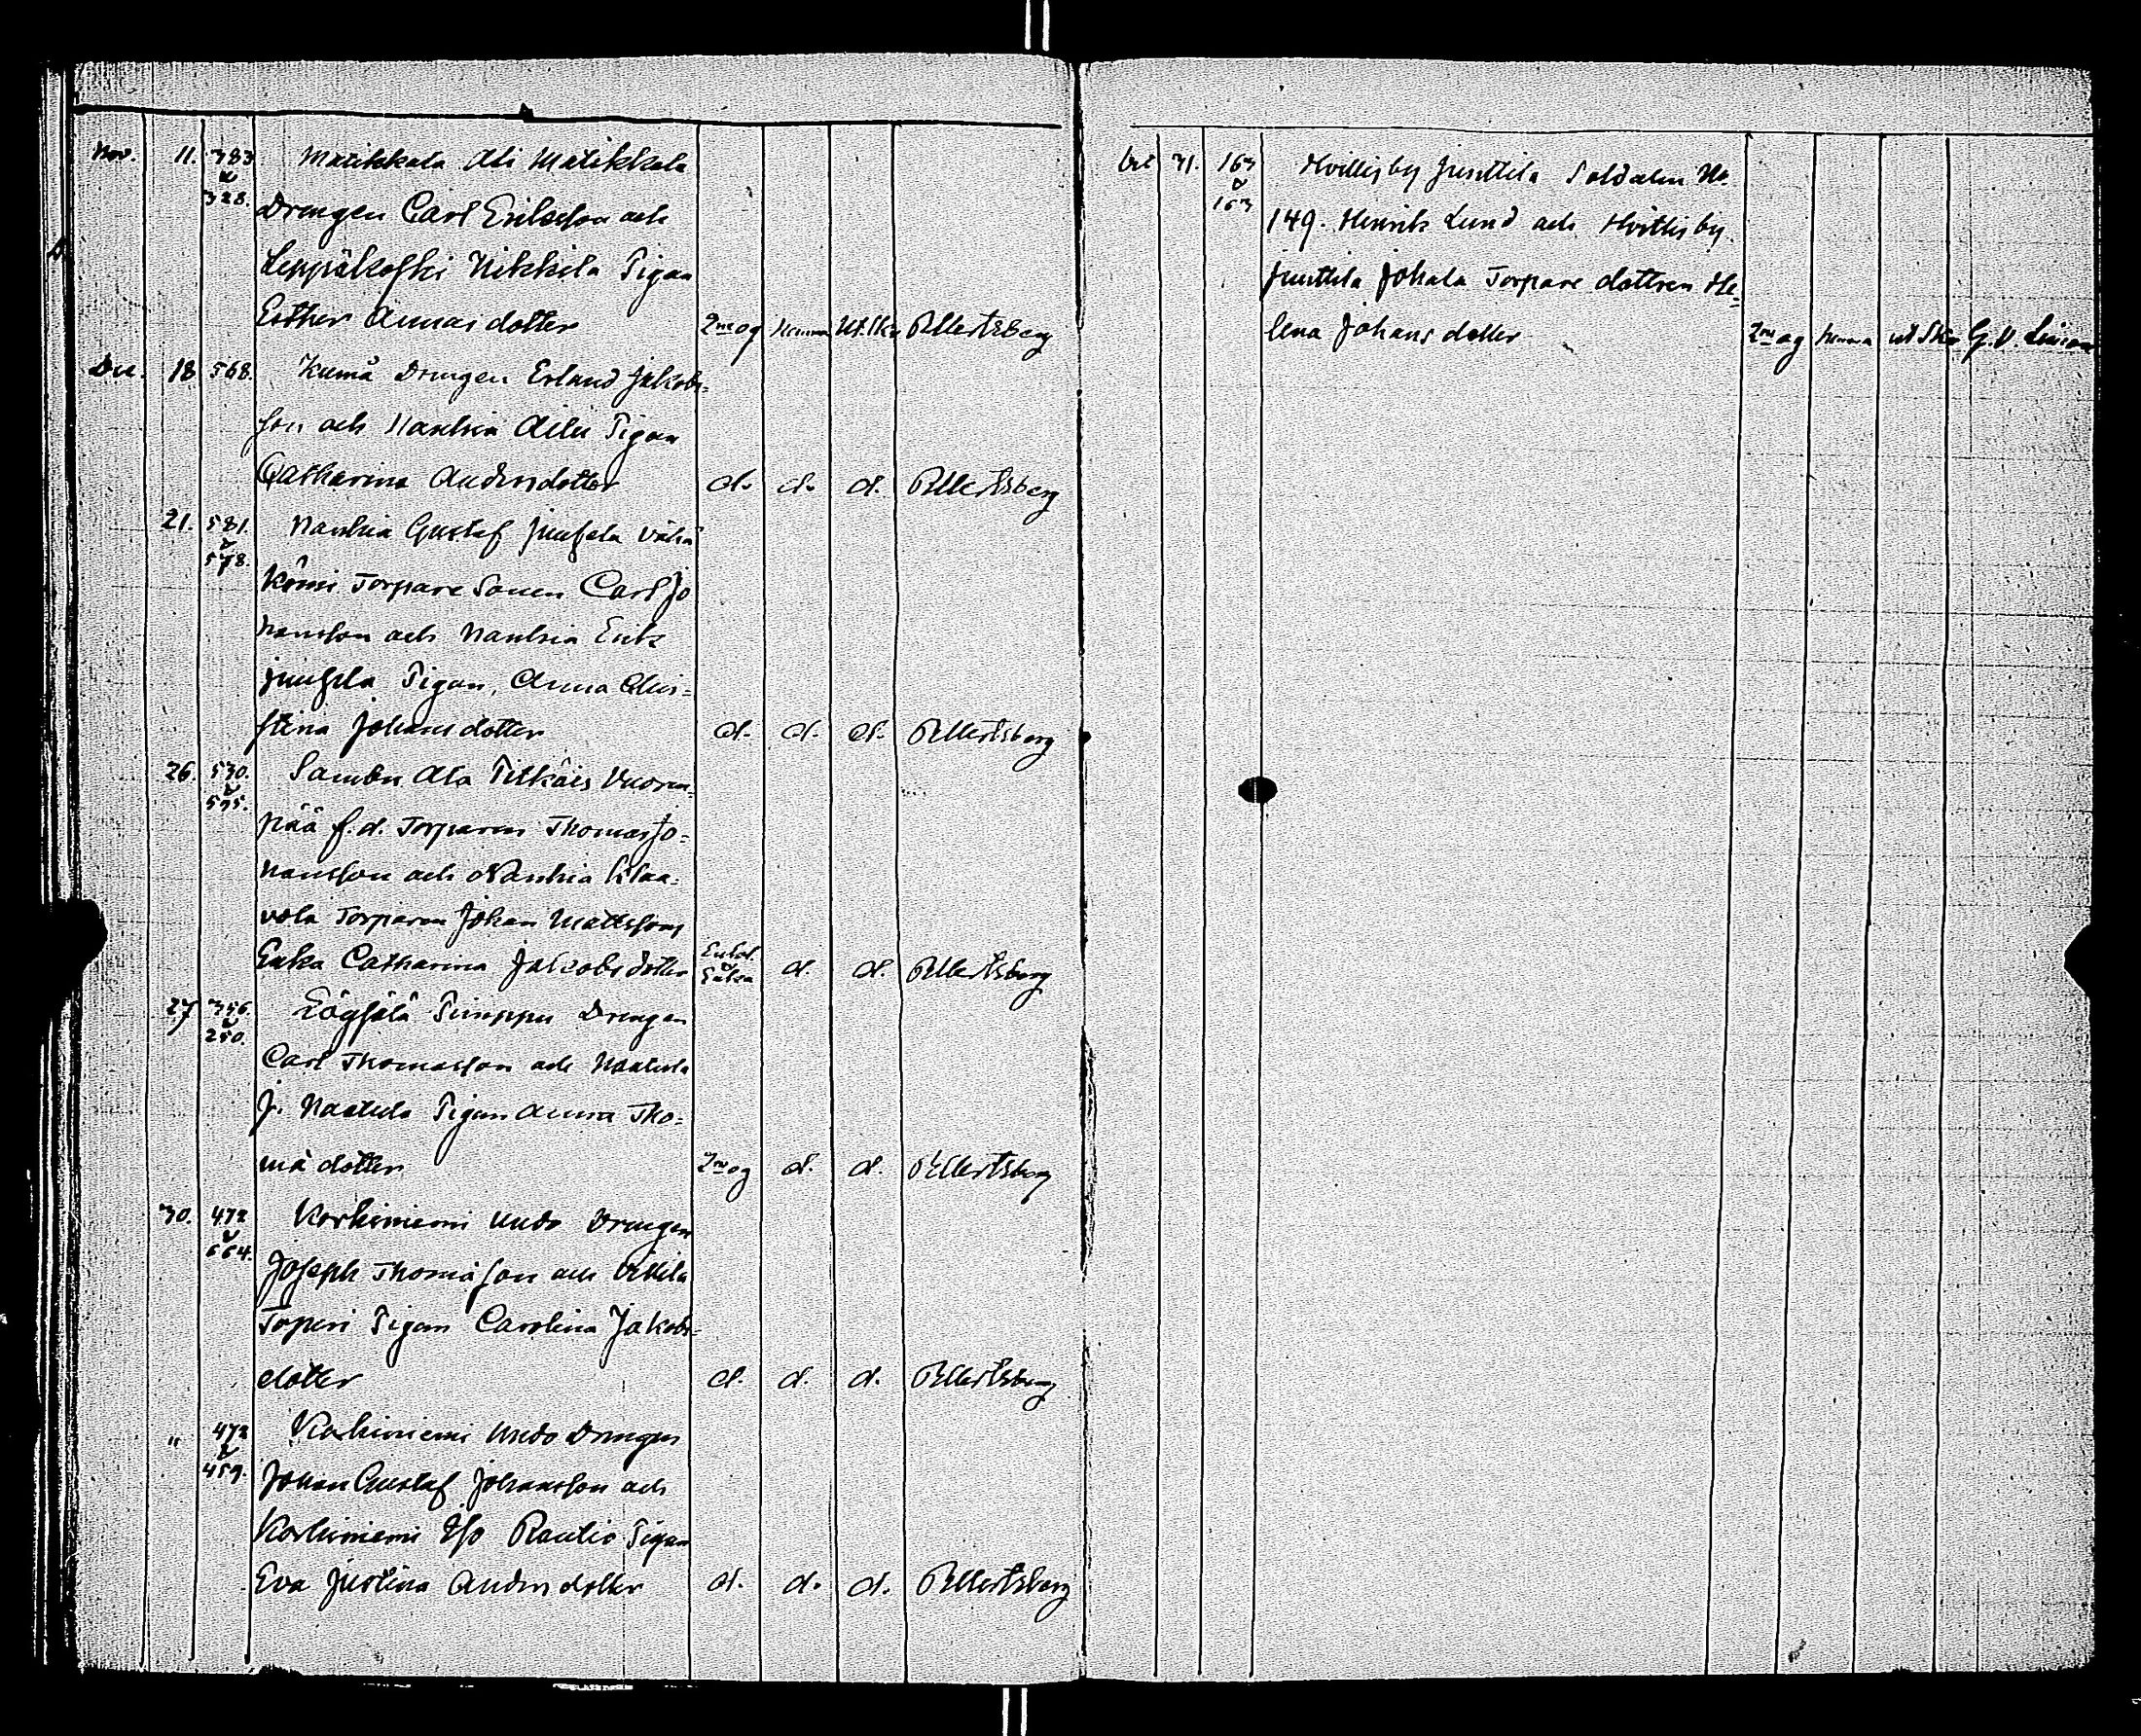 Nov. 11. 383 Matikkala Ali Matikkala
& 328. Drengen Carl Ericsson och
Leppäkoski Nikkila Pigan
Esther Annas dotter 2ne og Hemma Ut. Sk. R Mertsberg
Dec. 18 568. Kumä Drengen Erland Jakobs=
son och Nauhia Pigan
Catharina Anders dotter d. d. d. R Mertsberg
21. 581. & 578. Nauhia Gustaf Junfala Vähä
Torpare Sonen Carl Jo
hansson och Nauhia Erik
Junfala Pigan, Anna Chri=
stina Johans dotter d. d. d. R Mertsberg
26. 530. & 575. Sambu Ala Pitkäis Vuoren=
pää f.d. Torparen Thomas Jo=
hansson och Nauhia Klaa=
vola Torparen Johan Mattssons
Enka Catharina Jakobs dotter Enkol. & Enka d. d. R Mertsberg
27 356. & 250. Drengen
Carl Thomasson och Naatula
J. Naatula Pigan Anna Tho=
mä dotter 2ne og d. d. R Mertsberg
30. 472 & 664. Korkiniemi Undo Drengen
Joseph Thomäson och
Pigan Carolina Jakobs=
dotter d. d. d. R Mertsberg
" 472 & 459. Korkiniemi Undo Drengen
Johan Gustaf Johansson och
Korkiniemi Iso Rautio Pigan
Eva Justina Anders dotter d. d. d. R Mertsberg
31. 163 & 163 Hvittisby Junttila Soldaten No.
149. Henrik Lund och Hvittisby
Junttila Johala Torpare dottren He=
lena Johans dotter 2ne og hemma ut Sk. G. V.